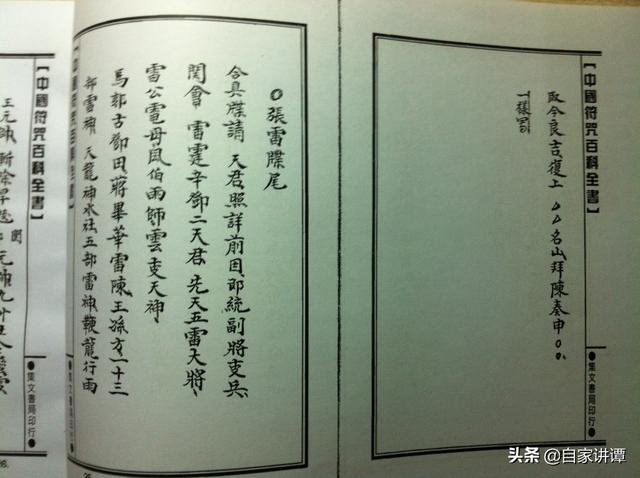 【中國符咒百科全書】
●集文書局印行●
取今良吉復上 厶厶名山拜陳奏申〇〇
一樣
〇張雷牒尾
合具牒請 天君照詳前因即統副將吏兵
関會 雷霆辛鄧二天君 先天五雷大將
雷公電母風伯雨師雲吏天神
馬郭古鄧田蔣畢華雷陳王孫方一十三
部雷神 天龍神水社五部雷神鞭龍行雨
中國符咒百科全書】
●集文書局印行●
【中國符咒百科全書】
●集文書局印行●
王元帥 斬除旱
元帥九
头条 @自家讲谭